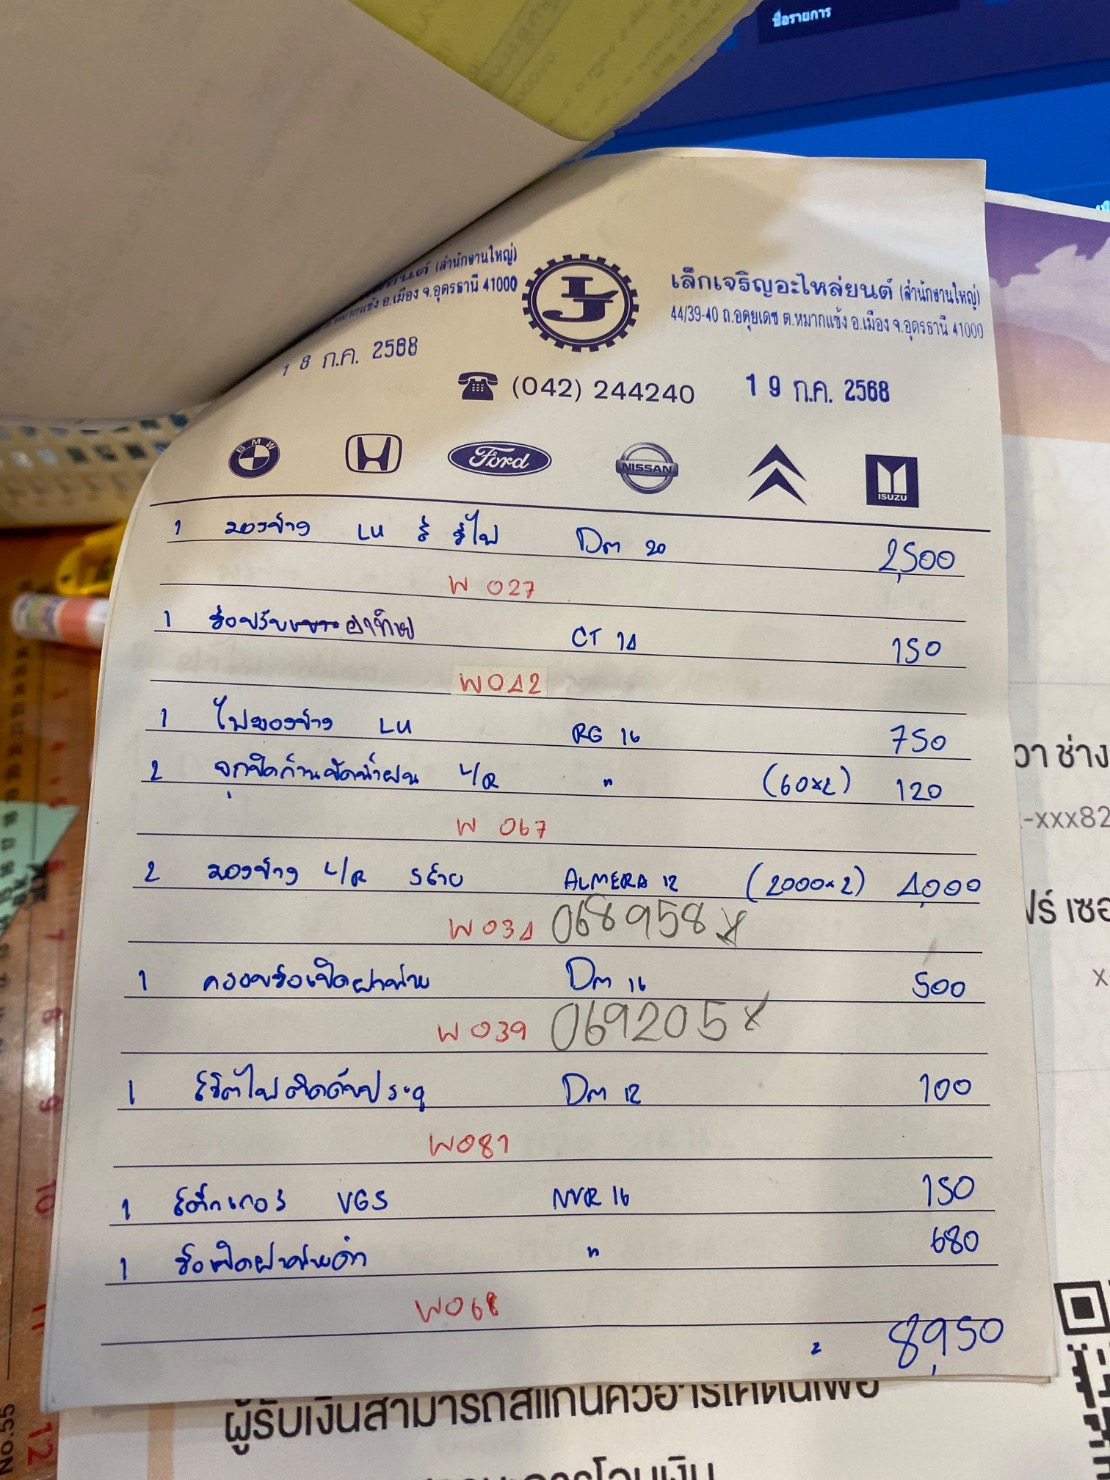 ชื่อรายการ
(สำนักงานใหญ่)
อ.เมือง จ.อุดรธานี 41000
18 ก.ค. 2568
LJ
เล็กเจริญอะไหล่ยนต์ (สำนักงานใหญ่)
44/39-40 ถ.อดุยเดช ต.หมากแข้ง อ.เมือง จ.อุดรธานี 41000
(042) 244240
19 ก.ค. 2568
BMW Ford NISSAN ISUZU
1 มองข้าง LH Dm 20 2,500
W 027
1 CT 14 150
W042
1 ไฟมองข้าง LH RG 16 750
2 จุกปิดก้านปัดน้ำฝน L/R " (60x2) 120
W 067
2 มองข้าง L/R 5สาย ALMERA 12 (2000x2) 4,000
W034 068958x
1 ครอบมือเปิดฝาท้าย Dm 16 500
W039 069205x
1 Dm 12 100
W081
1 สติ๊กเกอร์ VGS NVR 16 150
1 มือเปิดฝาท้ายดำ " 680
W068
8,950
วา ช่าง
-xxx82
x
ผู้รับเงินสามารถสแกนคิวอาร์โค้ดนี้เพื่อ
No.55